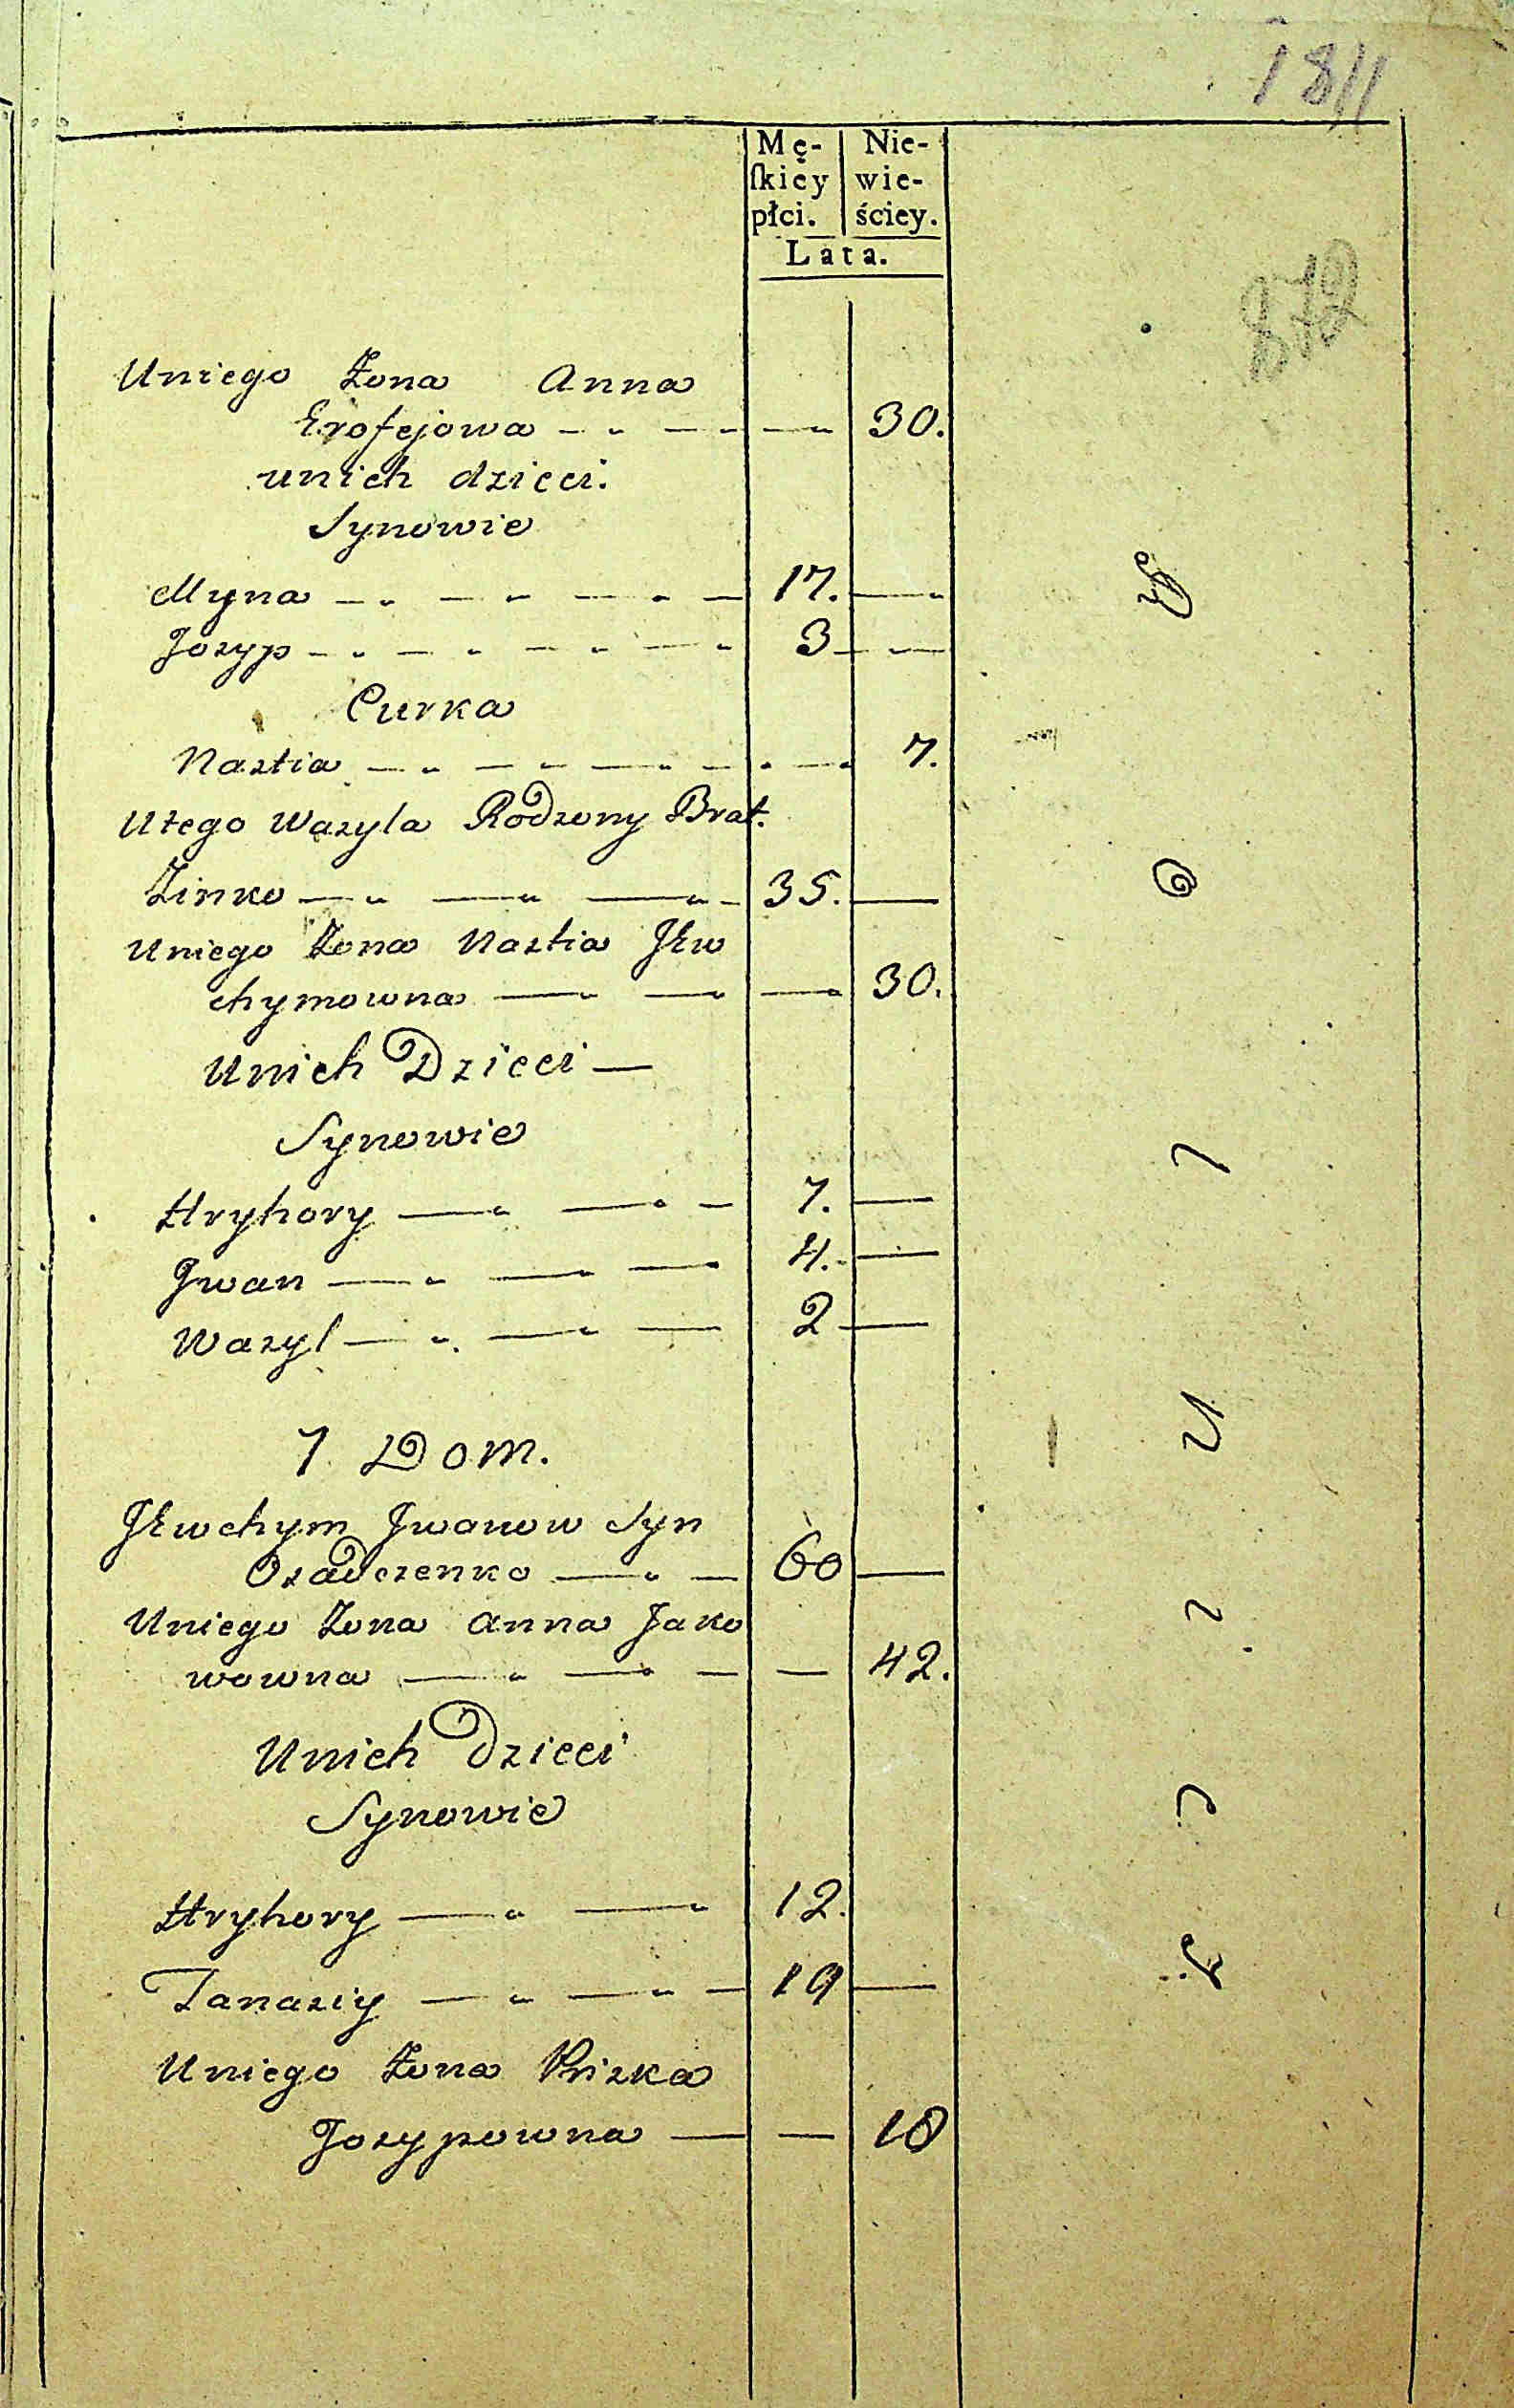 1811
Mę- Nie-
ſkiey wie-
płci. ściey.
Lata.
872
Uniego Żona Anna
Erofejowa 30.
unich dzieci.
Synowie
Myna 17.
Jozyp 3
Curka
Nastia 7.
Utego Wazyla Rodzony Brat.
Zinko 35.
Uniego Żona Nastia Jew
chymowna 30.
Unich Dzieci
Synowie
Hryhory 7.
Jwan 4.
Wazyl 2
7 Dom.
Jewchym Jwanow Syn
Ozadczenko 60
Uniego Żona Anna Jako
wowna 42.
Unich Dzieci
Synowie
Hryhory 12.
Tanaziy 19
Uniego Żona Prizka
Jozypowna 18